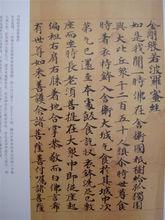 金剛般若波羅蜜經
如是我聞一時佛在舍衛國祇樹給孤獨園
與大比丘眾千二百五十人俱爾時世尊食
時著衣持鉢入舍衛大城乞食於其城中次
第乞已還至本處飯食訖收衣鉢洗足已敷
座而坐時長老須菩提在大眾中即從座起
偏袒右肩右膝著地合掌恭敬而白佛言希
有世尊如來善護念諸菩薩善付囑諸菩薩